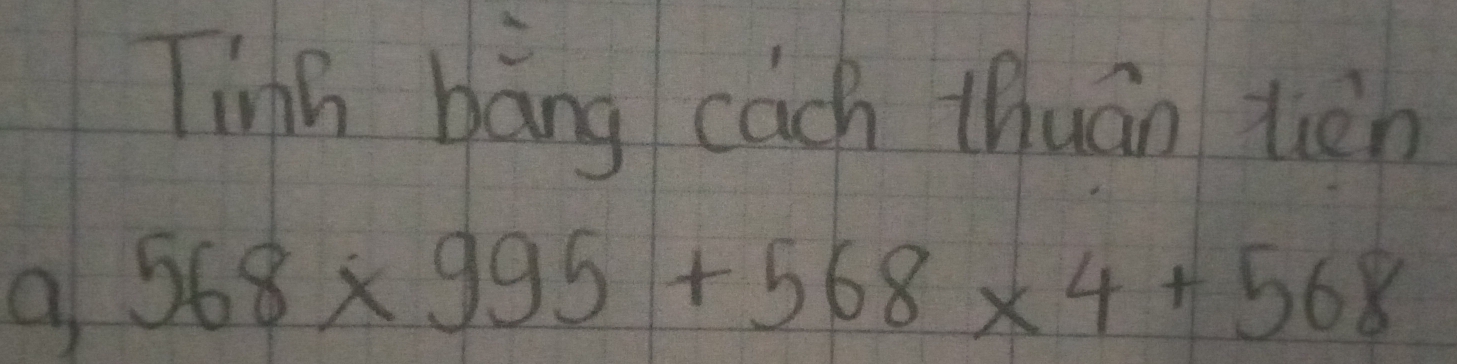 Tính bằng cách thuận tiện
a, 568 x 995 + 568 x 4 + 568